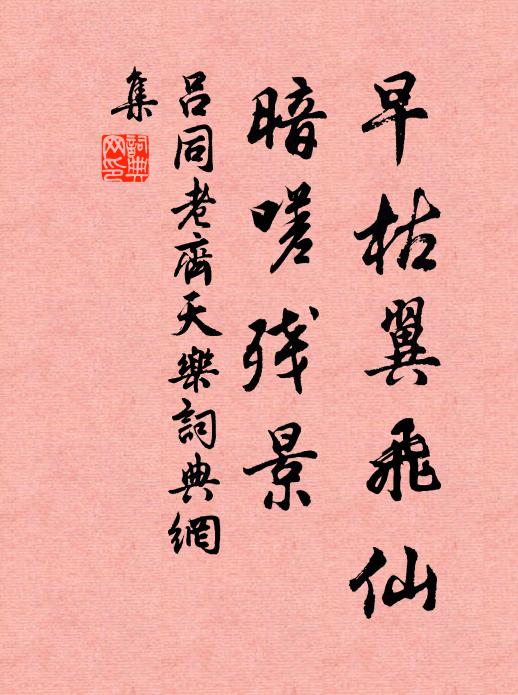 早枯翼飛仙
暗嗟残景
吕同老齊天樂詞典網
集
詞典
网印